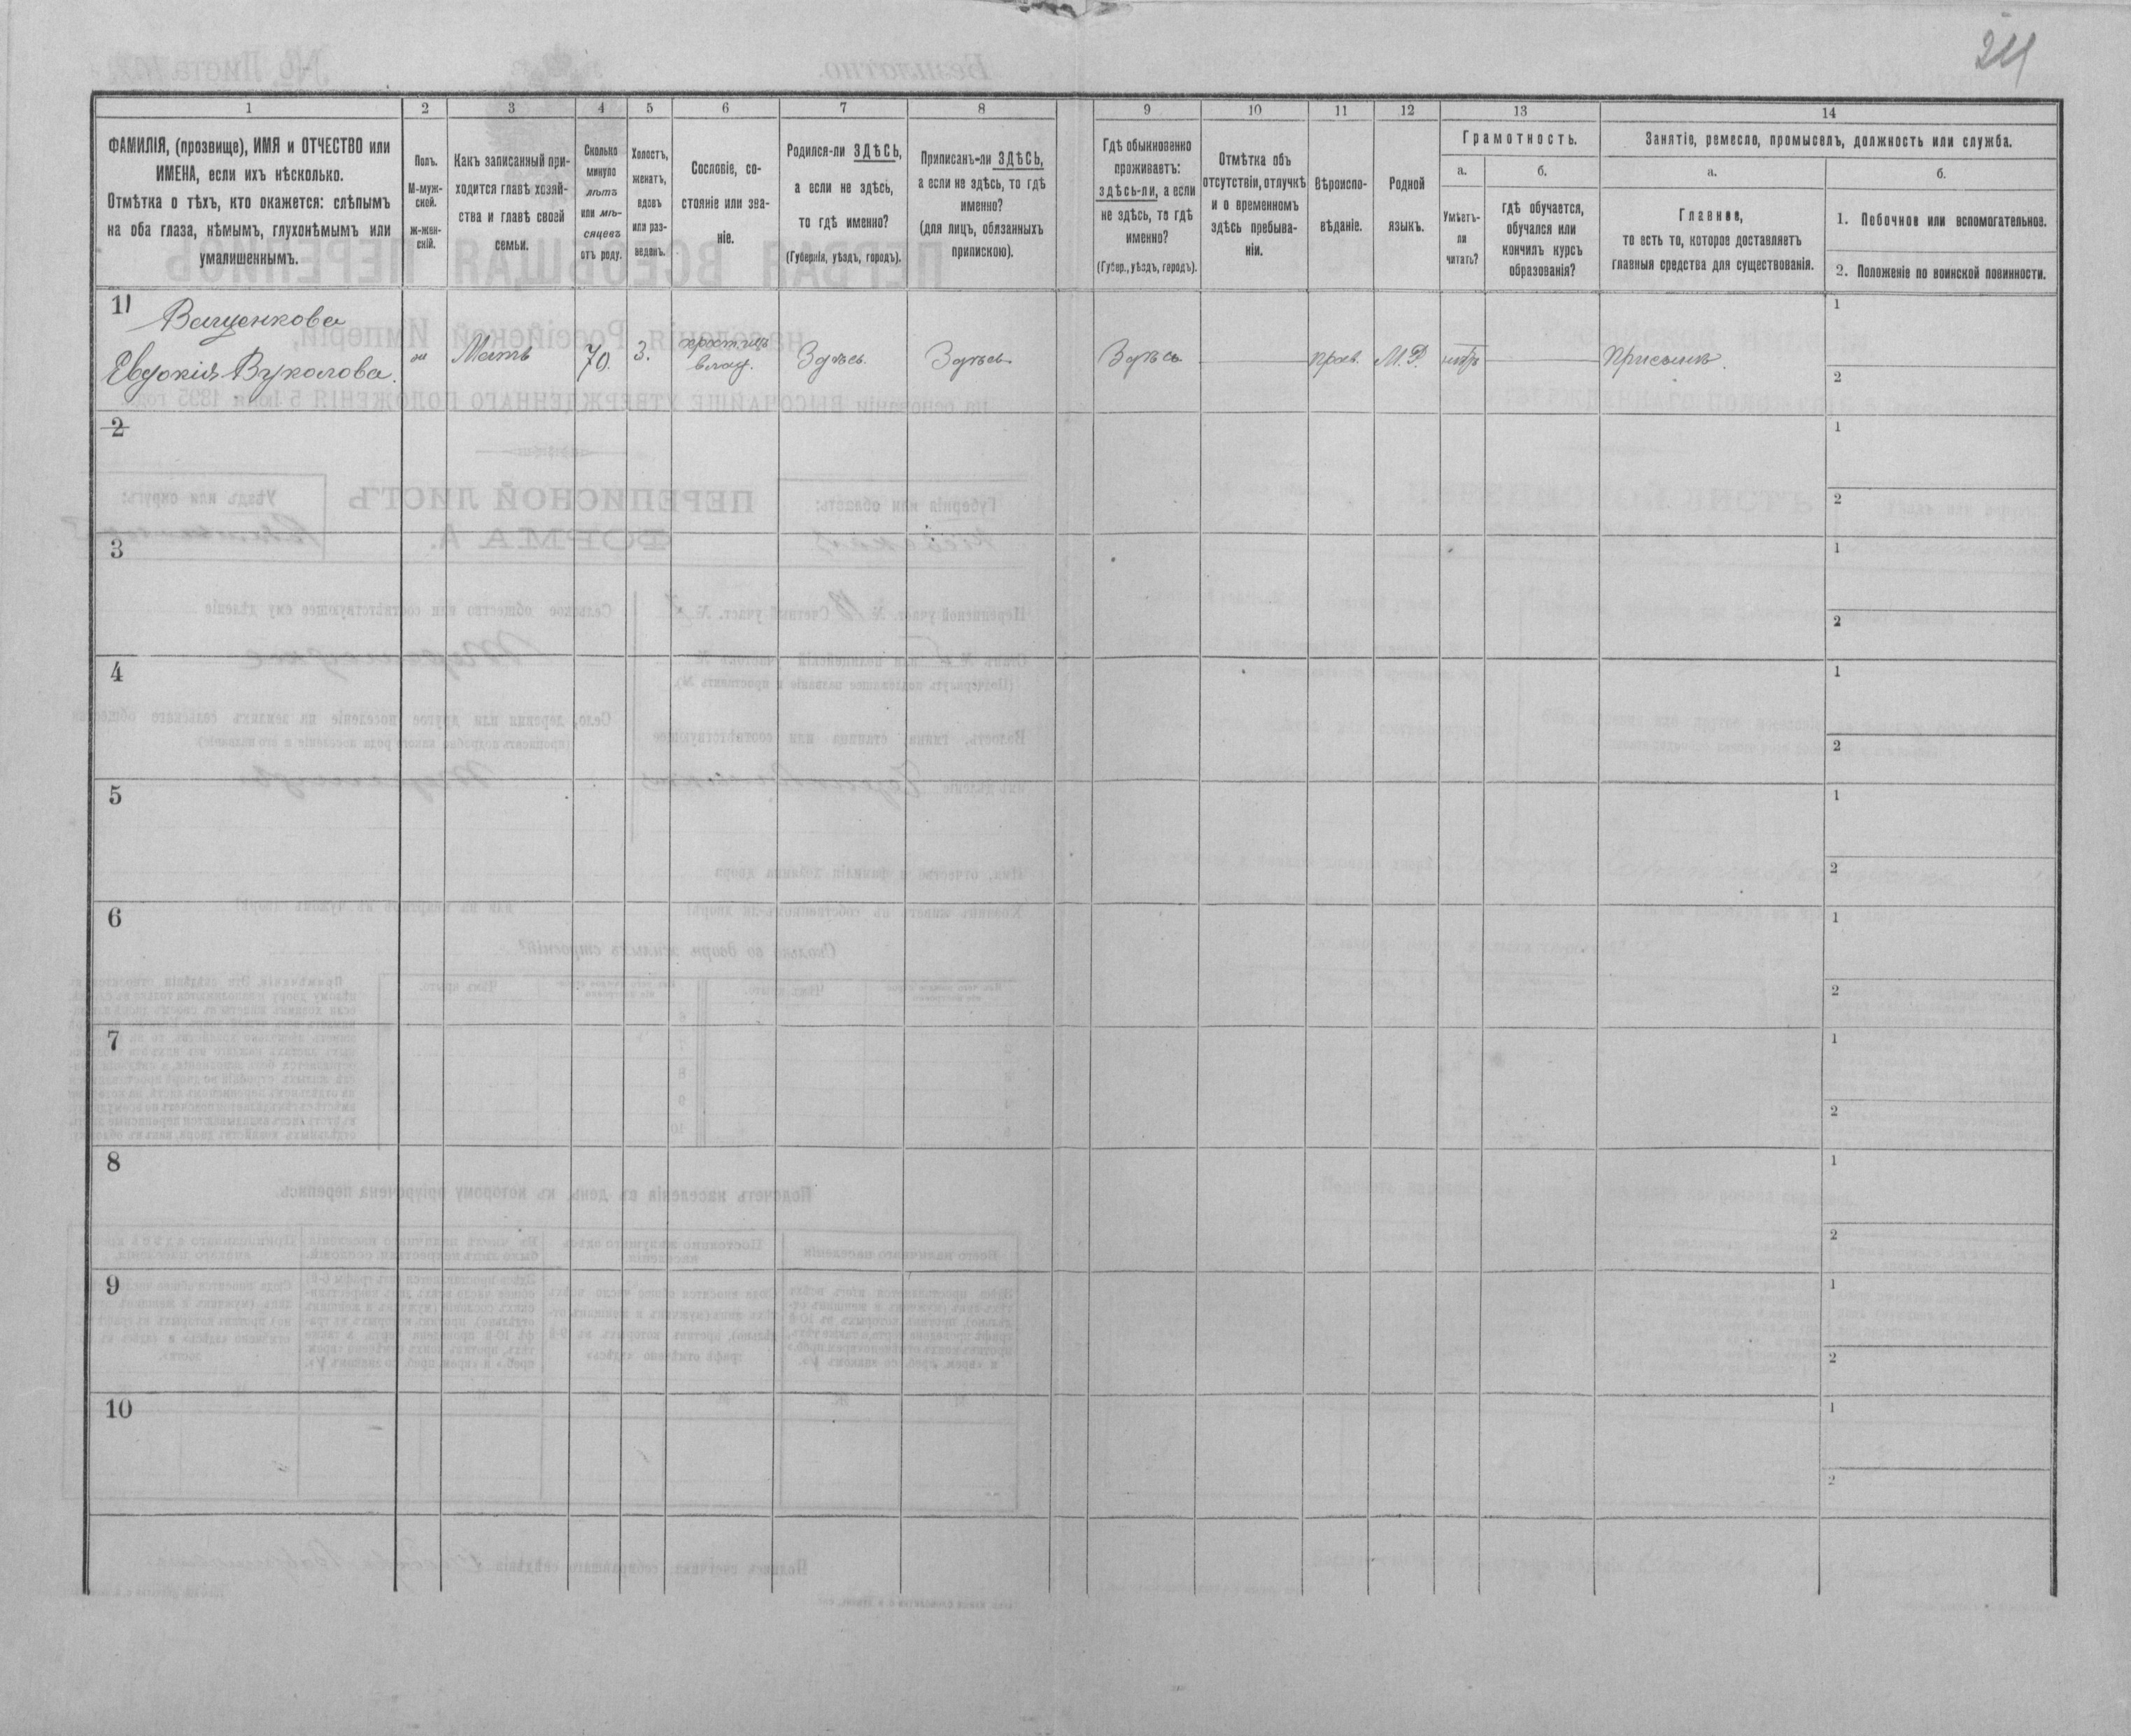 211
1
ФАМИЛІЯ, (прозвище), ИМЯ и ОТЧЕСТВО или
ИМЕНА, если ихъ нѣсколько.
Отмѣтка о тѣхъ, кто окажется: слѣпымъ
на оба глаза, нѣмымъ, глухонѣмымъ или
умалишеннымъ.
2
Полъ.
М-муж-
ской.
ж-жен-
скій.
3
Какъ записанный при-
ходится главѣ хозяй-
ства и главѣ своей
семьи.
4
Сколько
минуло
лѣтъ
или мѣ-
сяцевъ
отъ роду.
5
Холостъ,
женатъ,
вдовъ
или раз-
веденъ.
6
Сословіе, со-
стояніе или зва-
ніе.
7
Родился-ли ЗДѢСЬ,
а если не здѣсь,
то гдѣ именно?
(Губернія, уѣздъ, городъ).
8
Приписанъ-ли ЗДѢСЬ,
а если не здѣсь, то гдѣ
именно?
(для лицъ, обязанныхъ
припискою).
9
Гдѣ обыкновенно
проживаетъ:
здѣсь-ли, а если
не здѣсь, то гдѣ
именно?
(Губер., уѣздъ, городъ).
10
Отмѣтка объ
отсутствіи, отлучкѣ
и о временномъ
здѣсь пребыва-
ніи.
11
Вѣроиспо-
вѣданіе.
12
Родной
языкъ.
13
Грамотность.
а.
Умѣетъ-
ли
читать?
б.
гдѣ обучается,
обучался или
кончилъ курсъ
образованія?
14
Занятіе, ремесло, промыселъ, должность или служба.
а.
Главное,
то есть то, которое доставляетъ
главныя средства для существованія.
б.
1. Побочное или вспомогательное.
2. Положеніе по воинской повинности.
11
Ващенкова
Евдокія Вуколова.
ж
Мать
70.
З.
Здѣсь
Здѣсь
Здѣсь
прав.
М.Р.
1
2
2
1
2
3
1
2
4
1
2
5
1
2
6
1
2
7
1
2
8
1
2
9
1
2
10
1
2